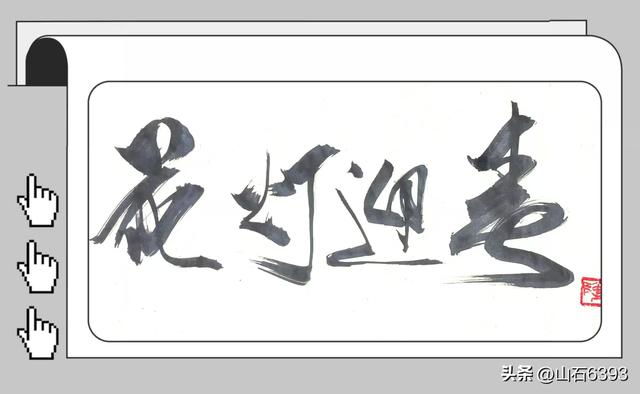 花灯迎春
头条 @山石6393